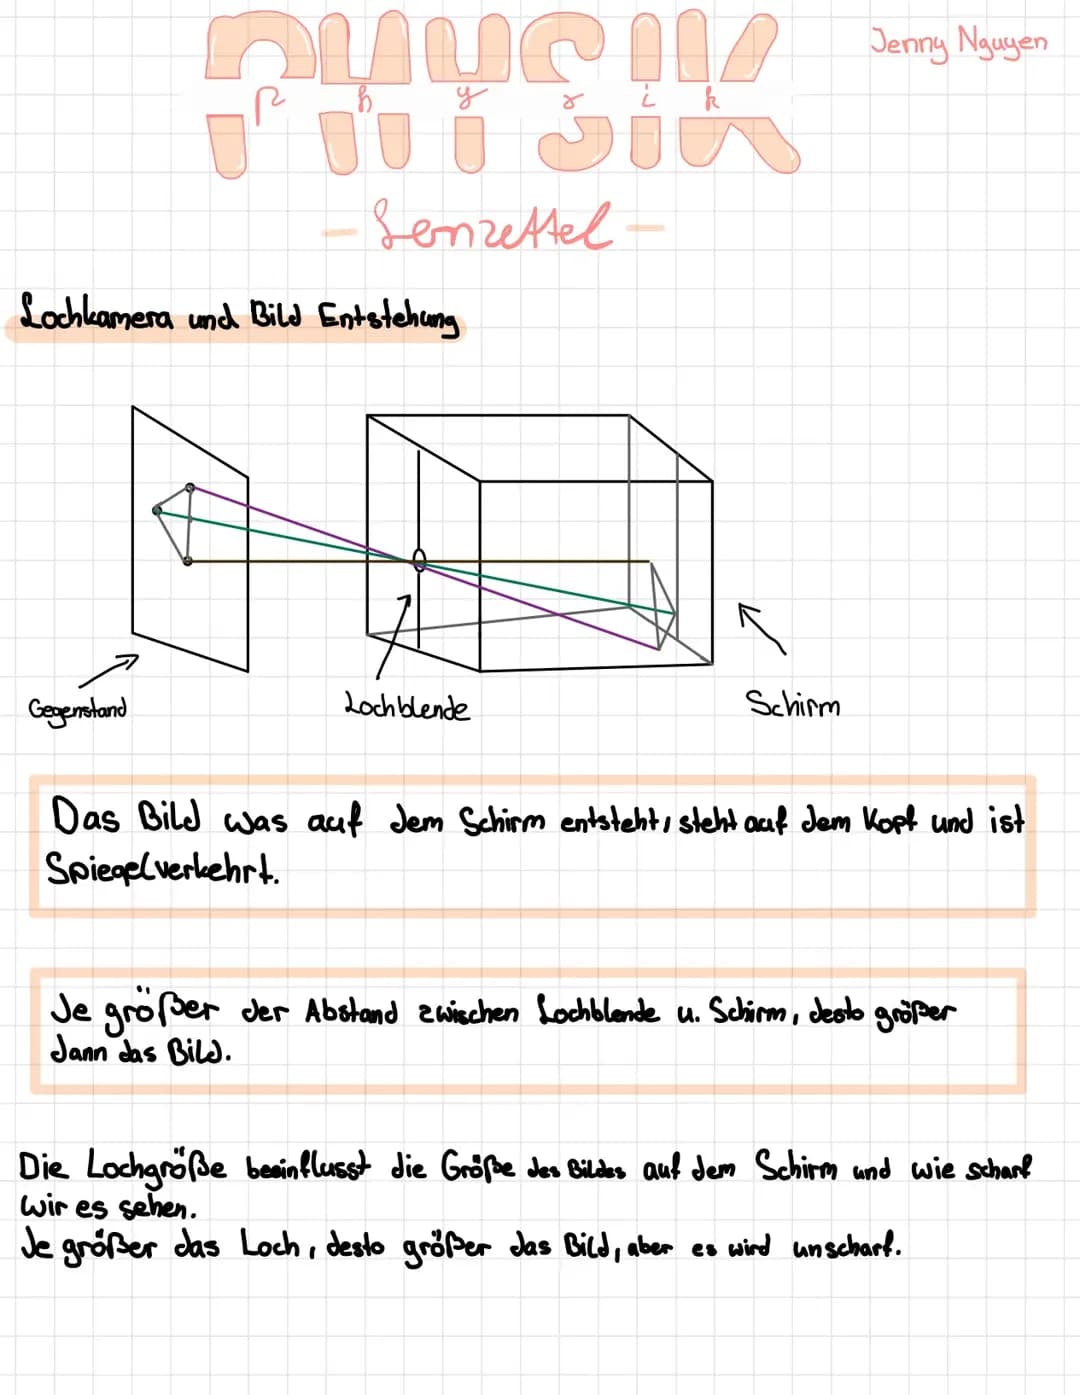 PHYSIK
Physik
Jenny Nguyen
- Lernzettel -
Lochkamera und Bild Entstehung
Gegenstand
Lochblende
Schirm
Das Bild was auf dem Schirm entsteht, steht auf dem Kopf und ist
Spiegelverkehrt.
Je größer der Abstand zwischen Lochblende u. Schirm, desto größer
dann das Bild.
Die Lochgröße beeinflusst die Größe des Bildes auf dem Schirm und wie scharf
wir es sehen.
Je größer das Loch, desto größer das Bild, aber es wird unscharf.